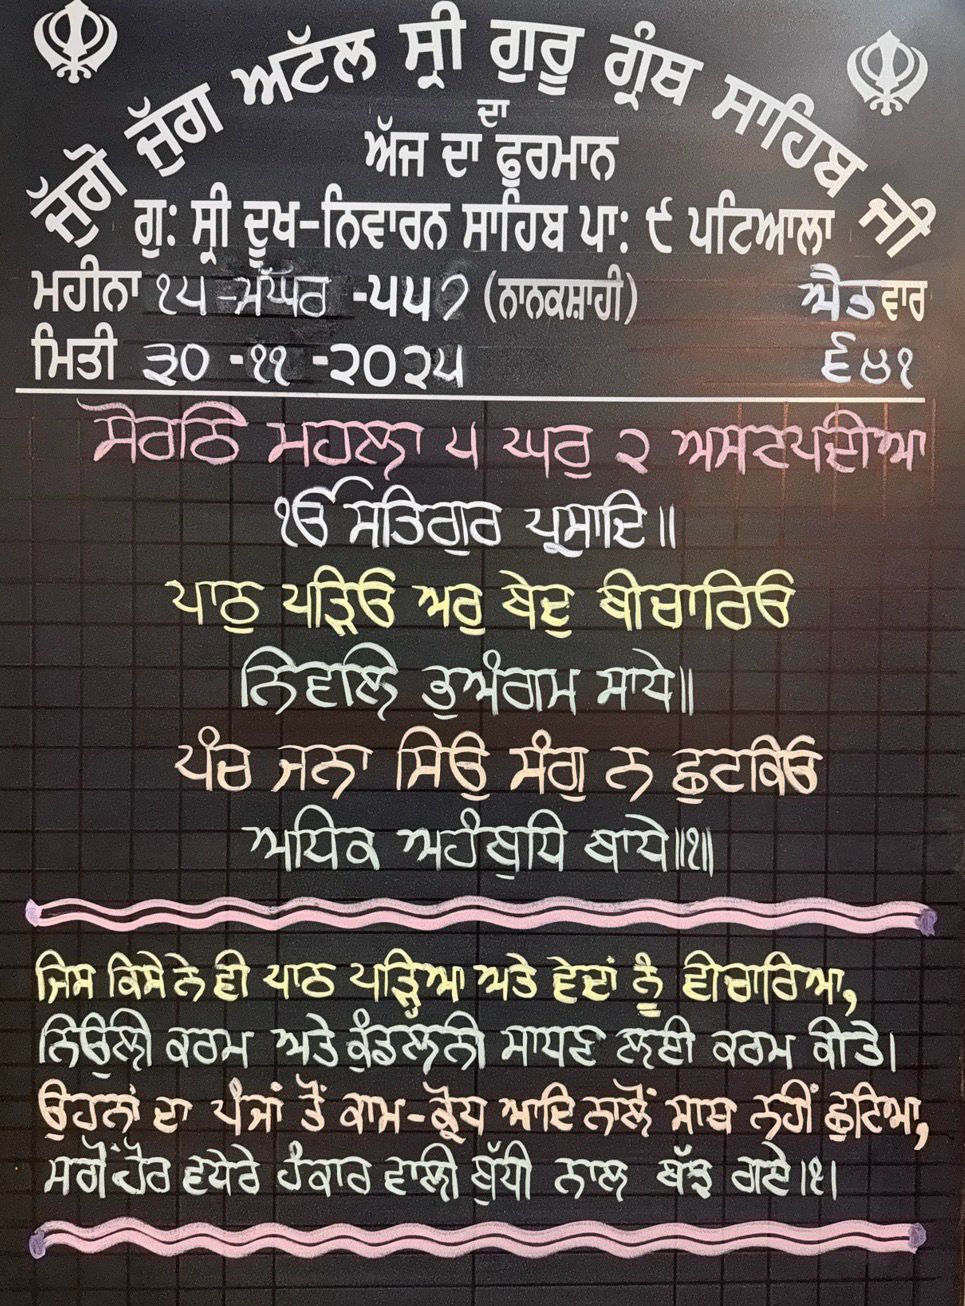 ਜੁੱਗੋ ਜੁੱਗ ਅਟੱਲ ਸ੍ਰੀ ਗੁਰੂ ਗ੍ਰੰਥ ਸਾਹਿਬ ਜੀ
ਦਾ
ਅੱਜ ਦਾ ਫੁਰਮਾਨ
ਗੁ: ਸ੍ਰੀ ਦੂਖ-ਨਿਵਾਰਨ ਸਾਹਿਬ ਪਾ: ੯ ਪਟਿਆਲਾ
ਮਹੀਨਾ ੧੫ -ਮੱਘਰ -੫੫੭ (ਨਾਨਕਸ਼ਾਹੀ) ਐਤਵਾਰ
ਮਿਤੀ ੩੦ -੧੧ -੨੦੨੫ ੬੪੧
ਸੋਰਠਿ ਮਹਲਾ ੫ ਘਰੁ ੨ ਅਸਟਪਦੀਆ
ੴ ਸਤਿਗੁਰ ਪ੍ਰਸਾਦਿ॥
ਪਾਠੁ ਪੜਿਓ ਅਰੁ ਬੇਦੁ ਬੀਚਾਰਿਓ
ਨਿਵਲਿ ਭੁਅੰਗਮ ਸਾਧੇ॥
ਪੰਚ ਜਨਾ ਸਿਉ ਸੰਗੁ ਨ ਛੁਟਕਿਓ
ਅਧਿਕ ਅਹੰਬੁਧਿ ਬਾਧੇ॥੧॥
ਜਿਸ ਕਿਸੇ ਨੇ ਵੀ ਪਾਠ ਪੜ੍ਹਿਆ ਅਤੇ ਵੇਦਾਂ ਨੂੰ ਵੀਚਾਰਿਆ,
ਨਿਉਲੀ ਕਰਮ ਅਤੇ ਕੁੰਡਲਨੀ ਸਾਧਣ ਲਈ ਕਰਮ ਕੀਤੇ।
ਉਹਨਾਂ ਦਾ ਪੰਜਾਂ ਤੋਂ ਕਾਮ-ਕ੍ਰੋਧ ਆਦਿ ਨਾਲੋਂ ਸਾਥ ਨਹੀਂ ਛੁਟਿਆ,
ਸਗੋਂ ਹੋਰ ਵਧੇਰੇ ਹੰਕਾਰ ਵਾਲੀ ਬੁੱਧੀ ਨਾਲ ਬੱਝ ਗਏ।੧।